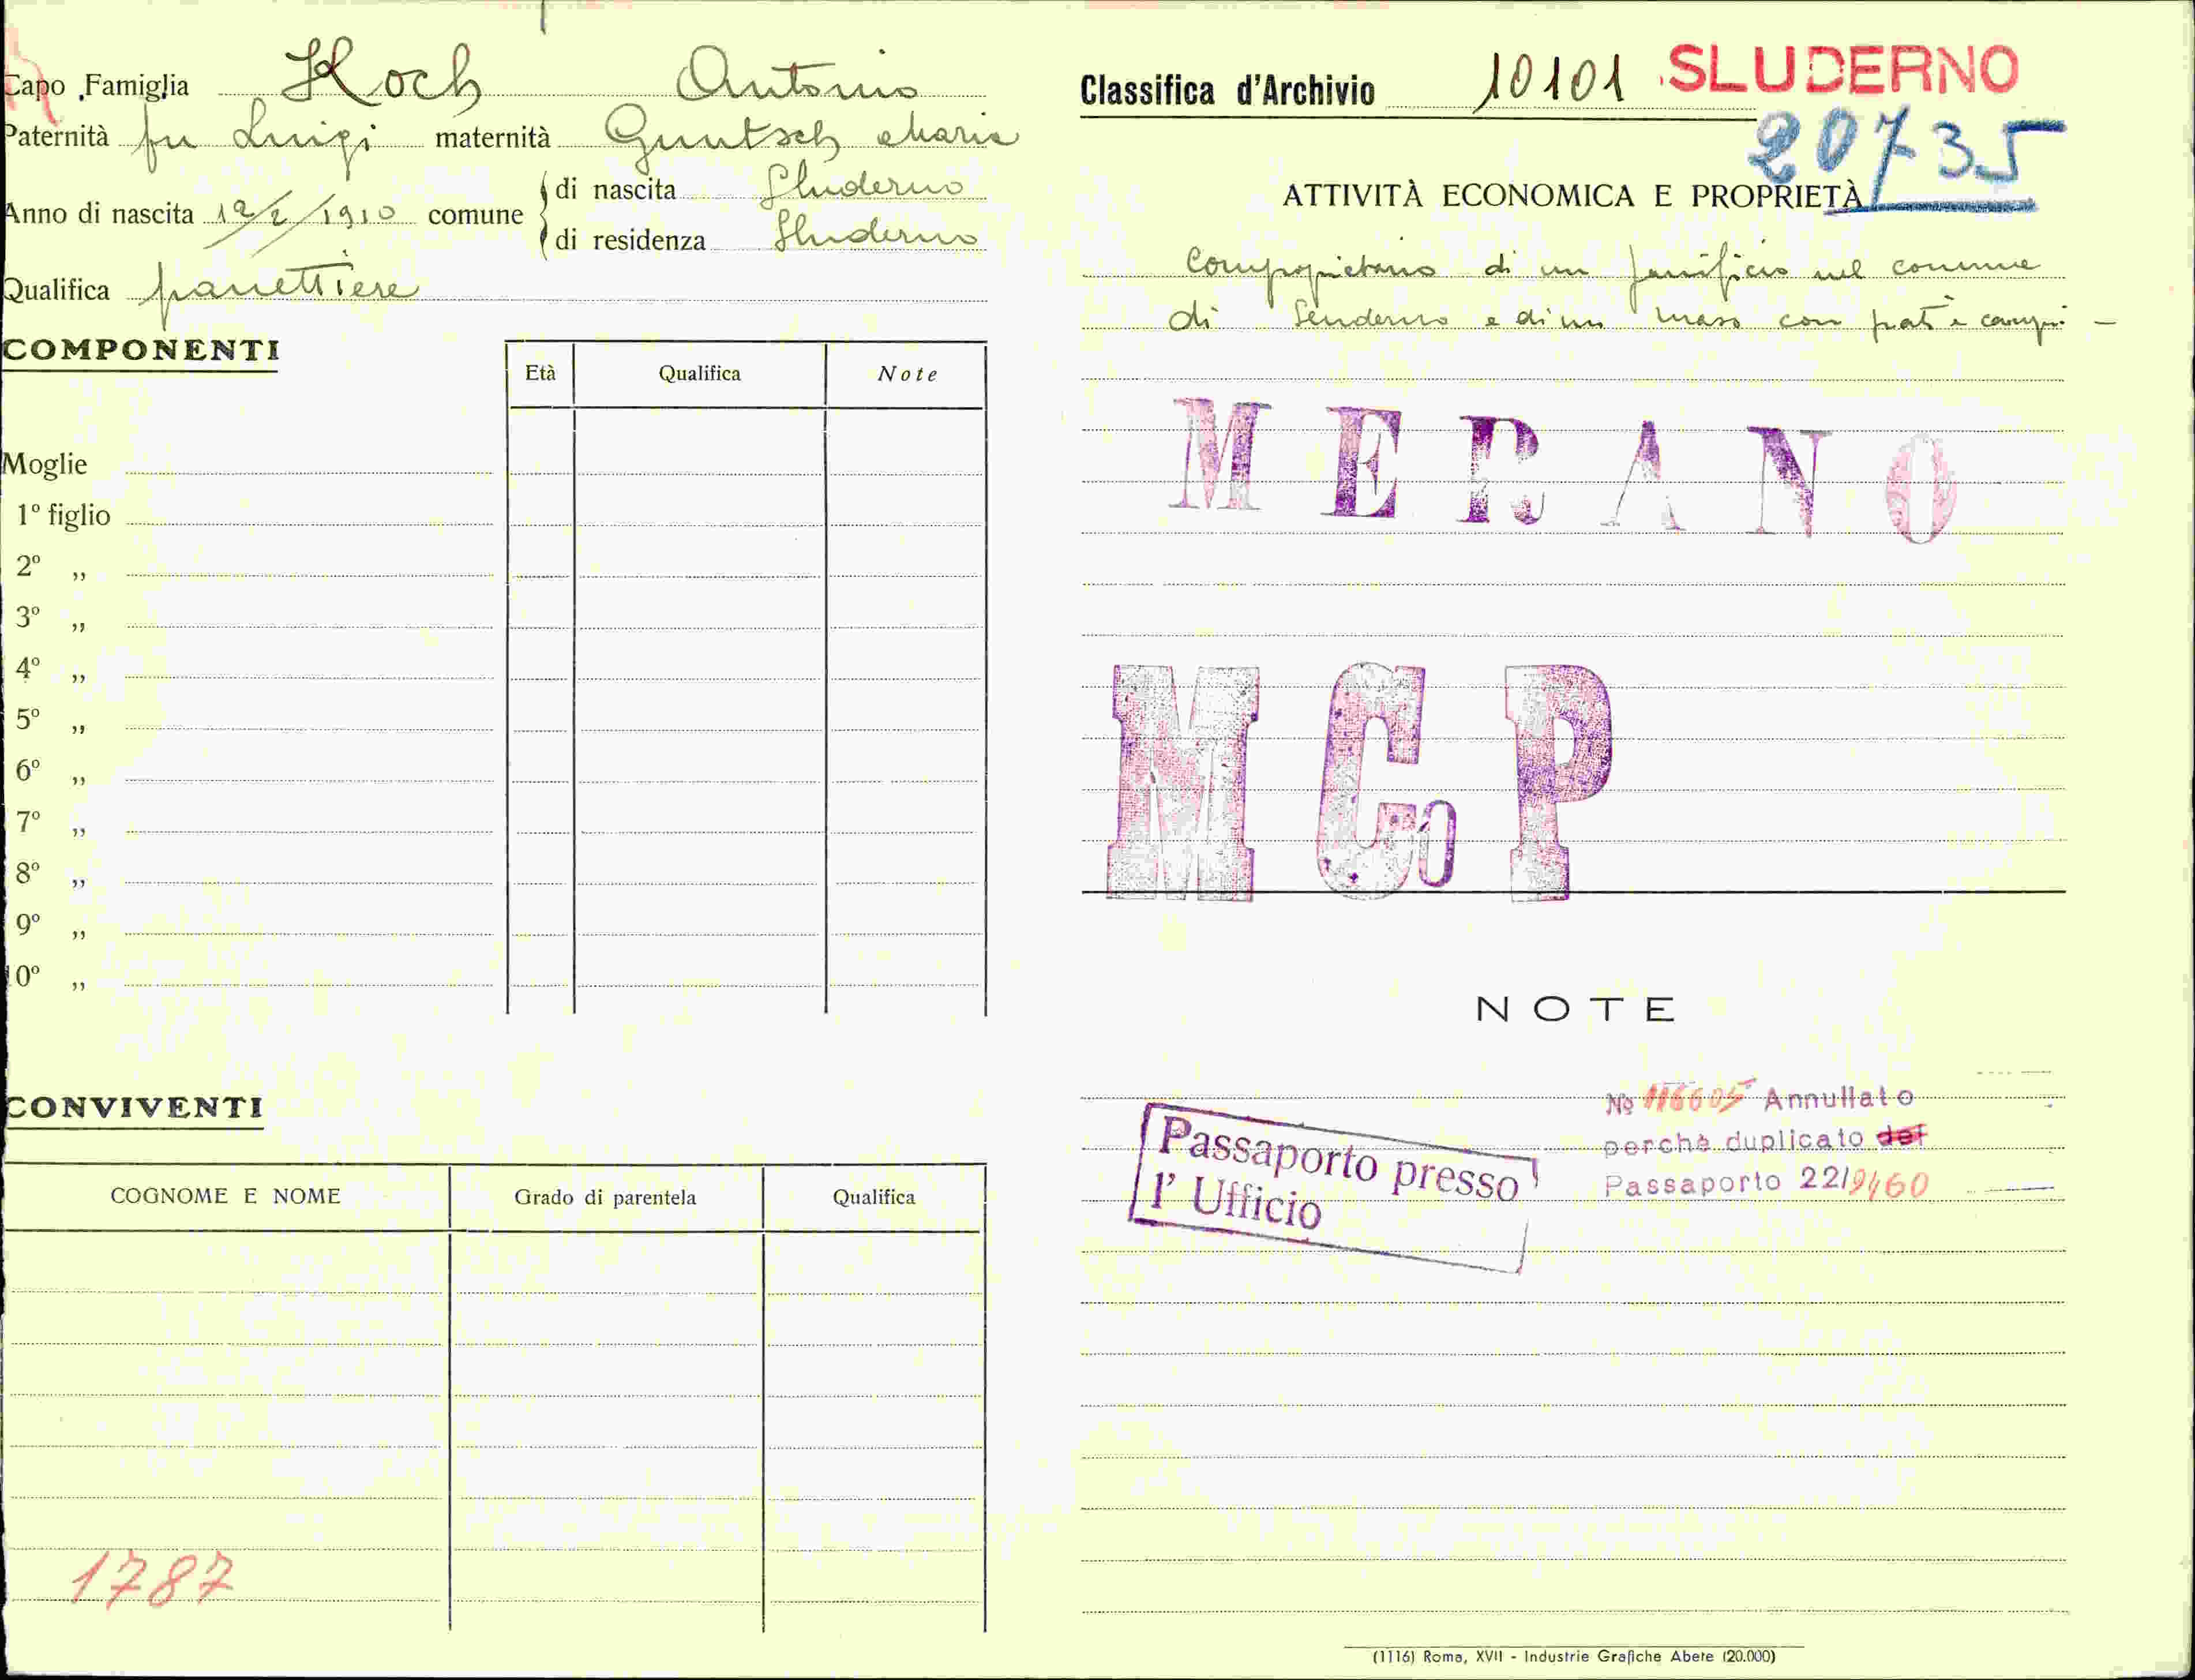 Capo Famiglia Koch Antonio
Paternità fu Luigi maternità Guntsch Maria
Anno di nascita 12/2/1910 comune
di nascita Sluderno
di residenza Sluderno
Qualifica panettiere
COMPONENTI
Età Qualifica Note
Moglie
1º figlio
2º ,,
3º ,,
4º ,,
5º ,,
6º ,,
7º ,,
8º ,,
9º ,,
10º ,,
CONVIVENTI
COGNOME E NOME Grado di parentela Qualifica
1787
Classifica d'Archivio 10101 SLUDERNO
20735
ATTIVITÀ ECONOMICA E PROPRIETÀ
Comproprietario di un panificio nel comune
di e di un maso con prati e campi -
MERANO
MCoP
NOTE
Passaporto presso
l' Ufficio
No 116605 Annullato
perchè duplicato del
Passaporto 22/9460
(1116) Roma, XVII - Industrie Grafiche Abete (20.000)